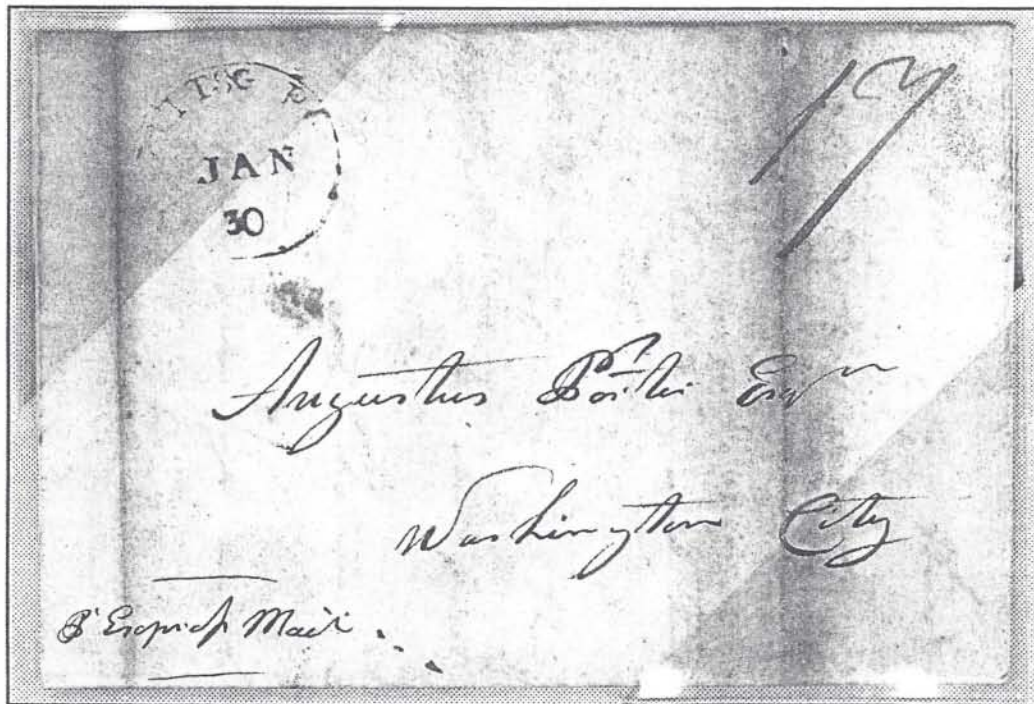 JAN
30
Augustus Porter Esqr
Washington City
Pr Express Mail